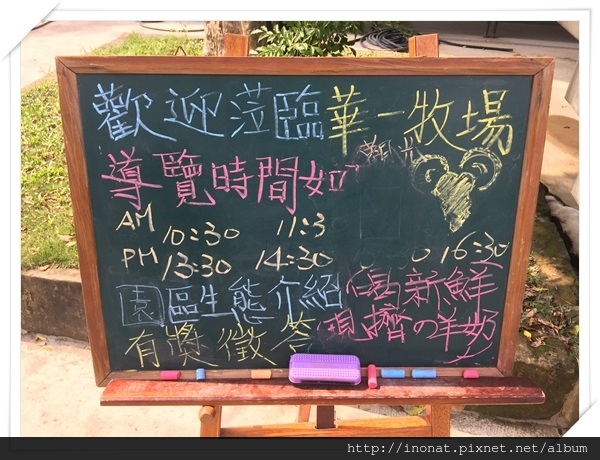 歡迎蒞臨華一牧場
導覽時間如
AM 10:30 11:3
PM 13:30 14:30 0 16:30
園區生態介紹 喝新鮮
有獎徵答 現擠の羊奶
http://inonat.pixnet.net/album